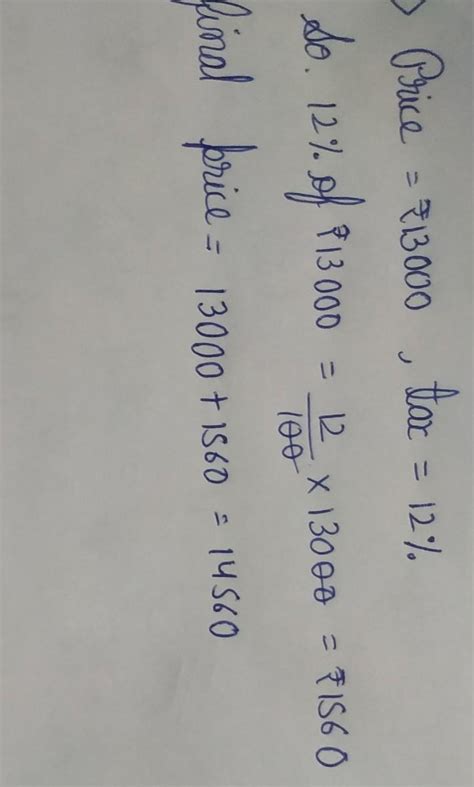 > Price = ₹13000 , tax = 12%
So. 12% of ₹13000 = 12/100 × 13000 = ₹1560
final price = 13000 + 1560 = 14560